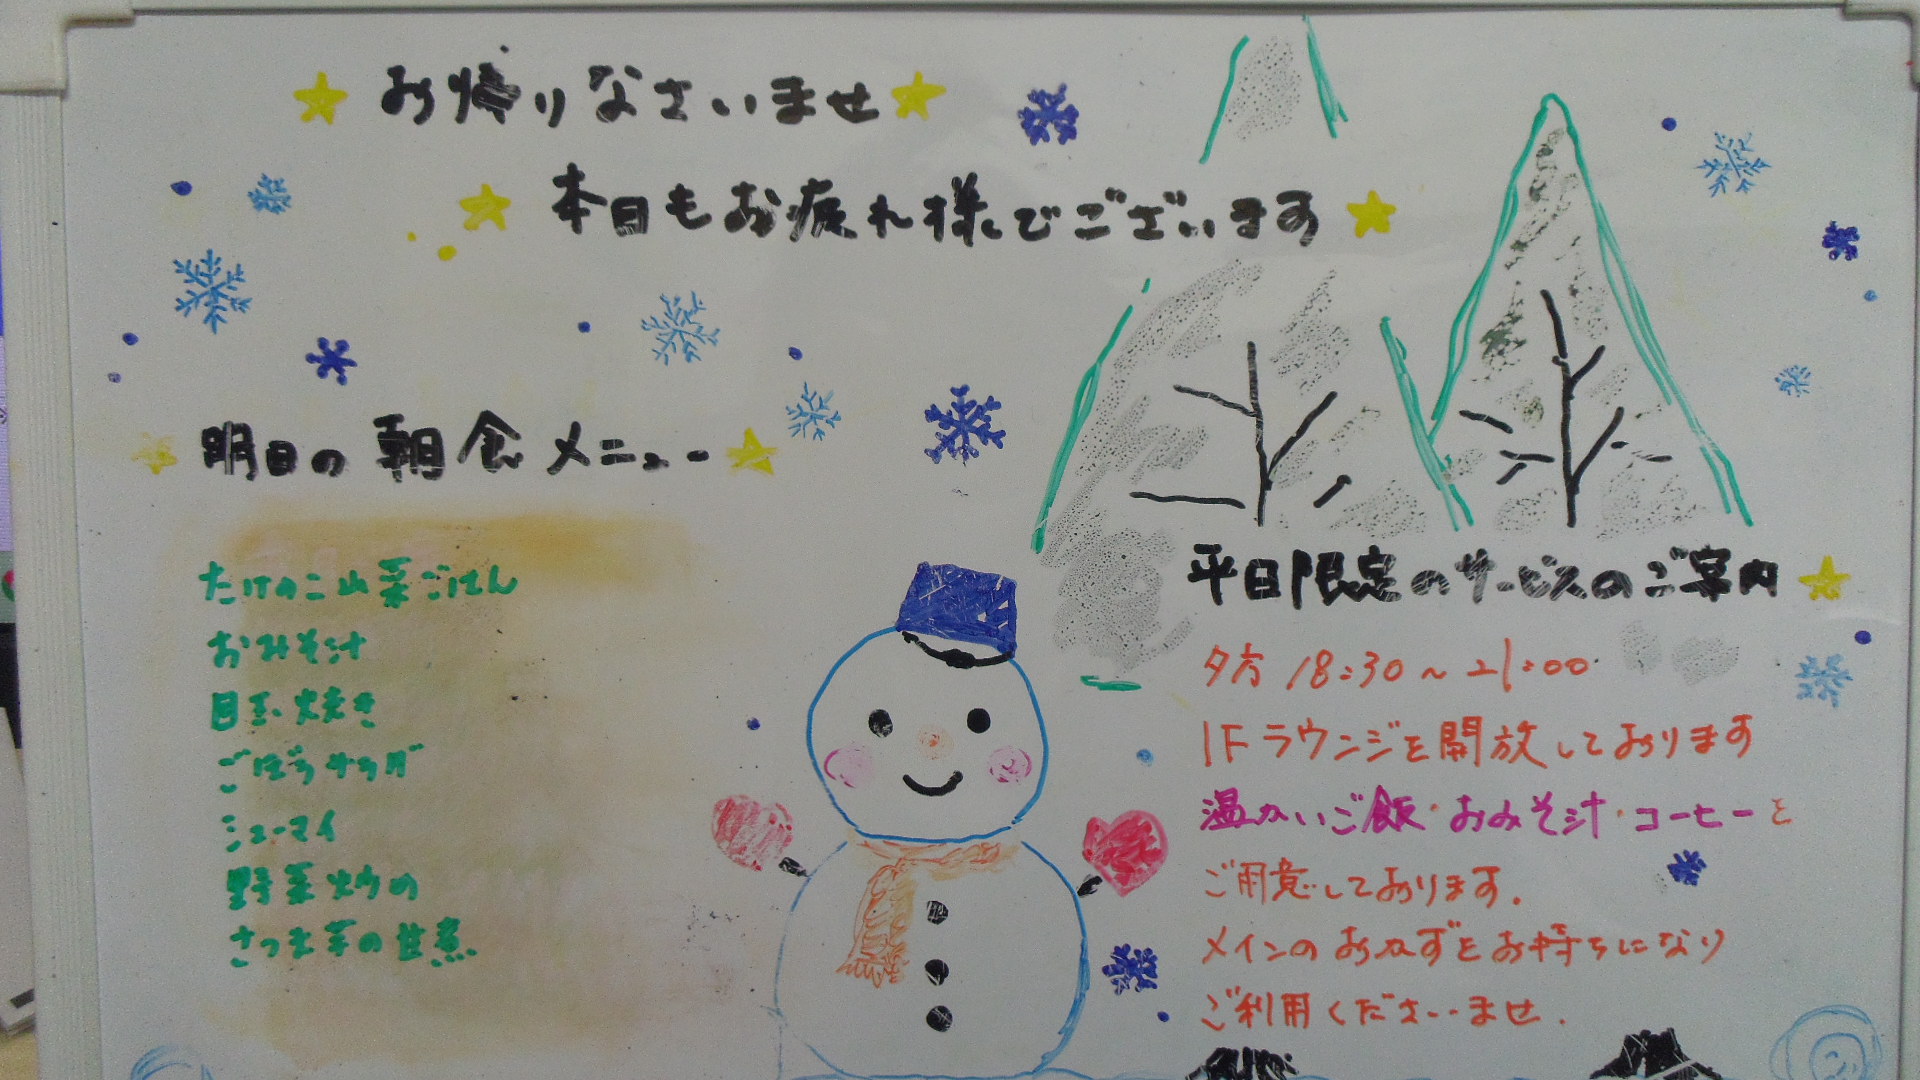 お帰りなさいませ
本日もお疲れ様でございます
明日の朝食メニュー
たけのこ山菜ごはん
おみそ汁
目玉焼き
ごぼうサラダ
シューマイ
野菜炒め
さつま芋の甘煮
平日限定のサービスのご案内
夕方 18:30～21:00
1Fラウンジを開放しております
温かいご飯・おみそ汁・コーヒーを
ご用意しております。
メインのおかずをお持ちになり
ご利用くださいませ.